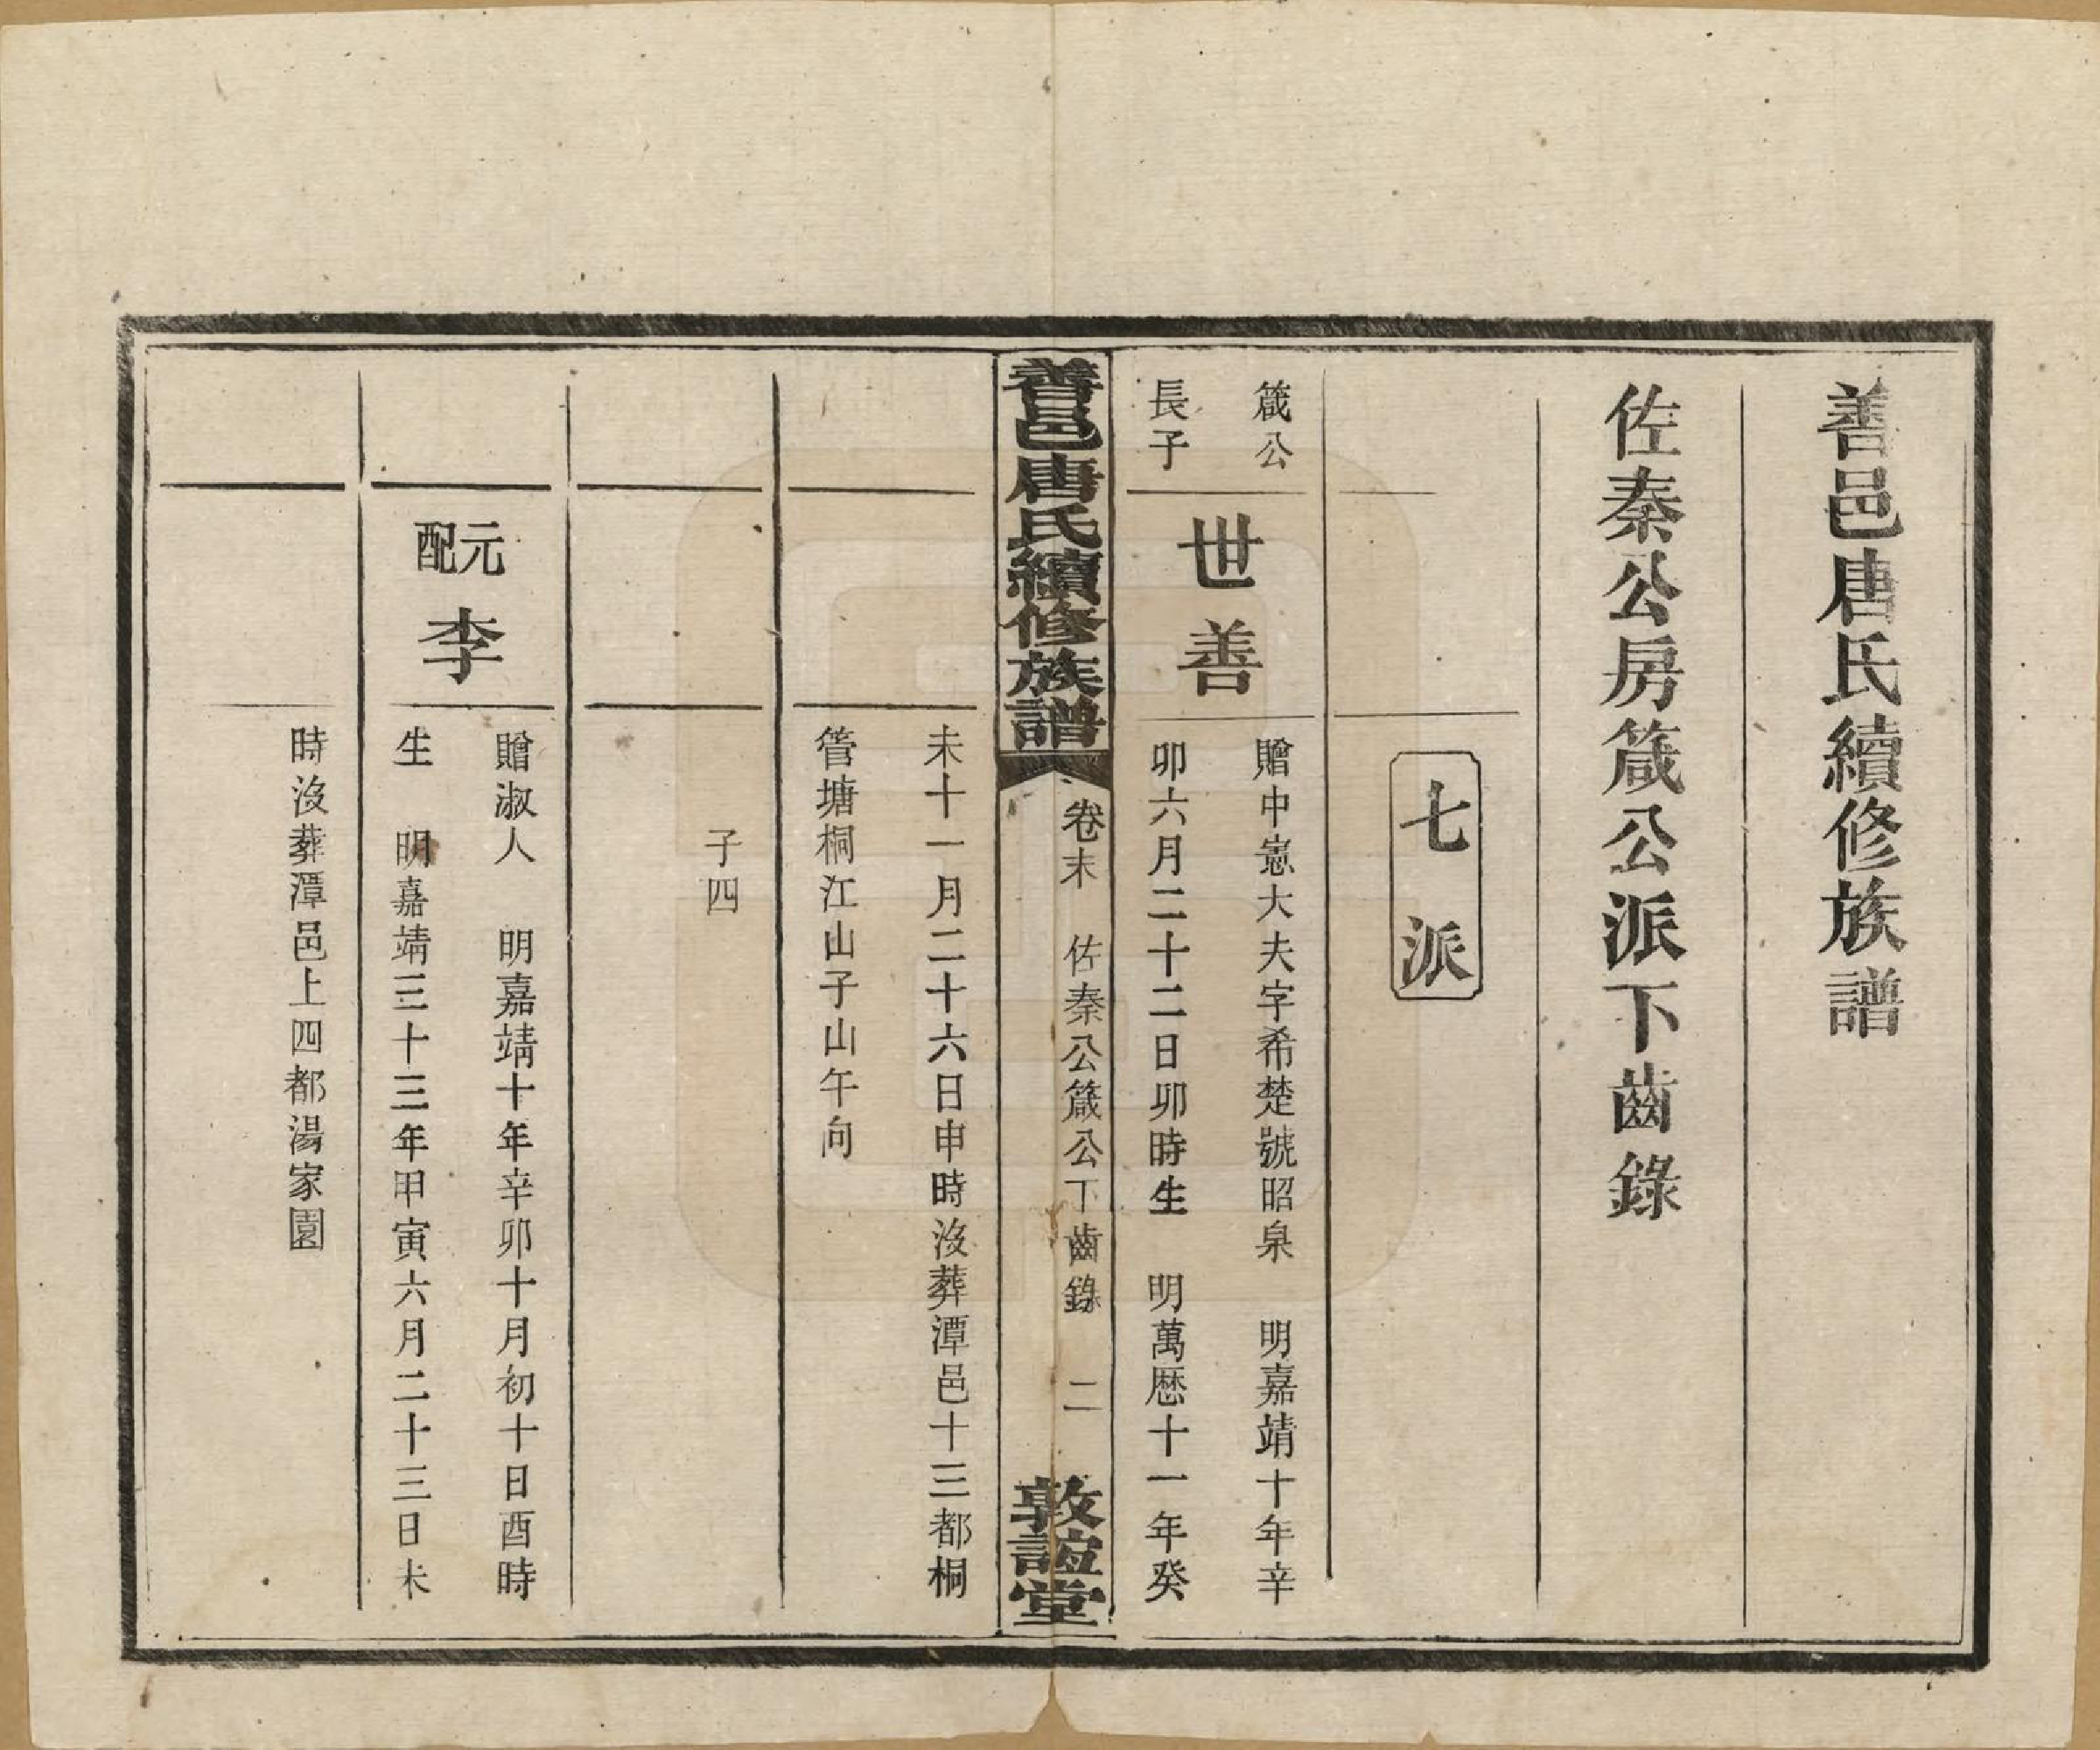 善邑唐氏續修族譜
佐秦公房箴公派下齒錄
七派
箴公
長子
世善
贈中憲大夫字希楚號昭泉　明嘉靖十年辛
卯六月二十二日卯時生　明萬歷十一年癸
善邑唐氏續修族譜
卷末　佐秦公箴公下齒錄　二
敦誼堂
未十一月二十六日申時沒葬潭邑十三都桐
管塘桐江山子山午向
子四
元配
李
贈淑人　明嘉靖十年辛卯十月初十日酉時
生　明嘉靖三十三年甲寅六月二十三日未
時沒葬潭邑上四都湯家園